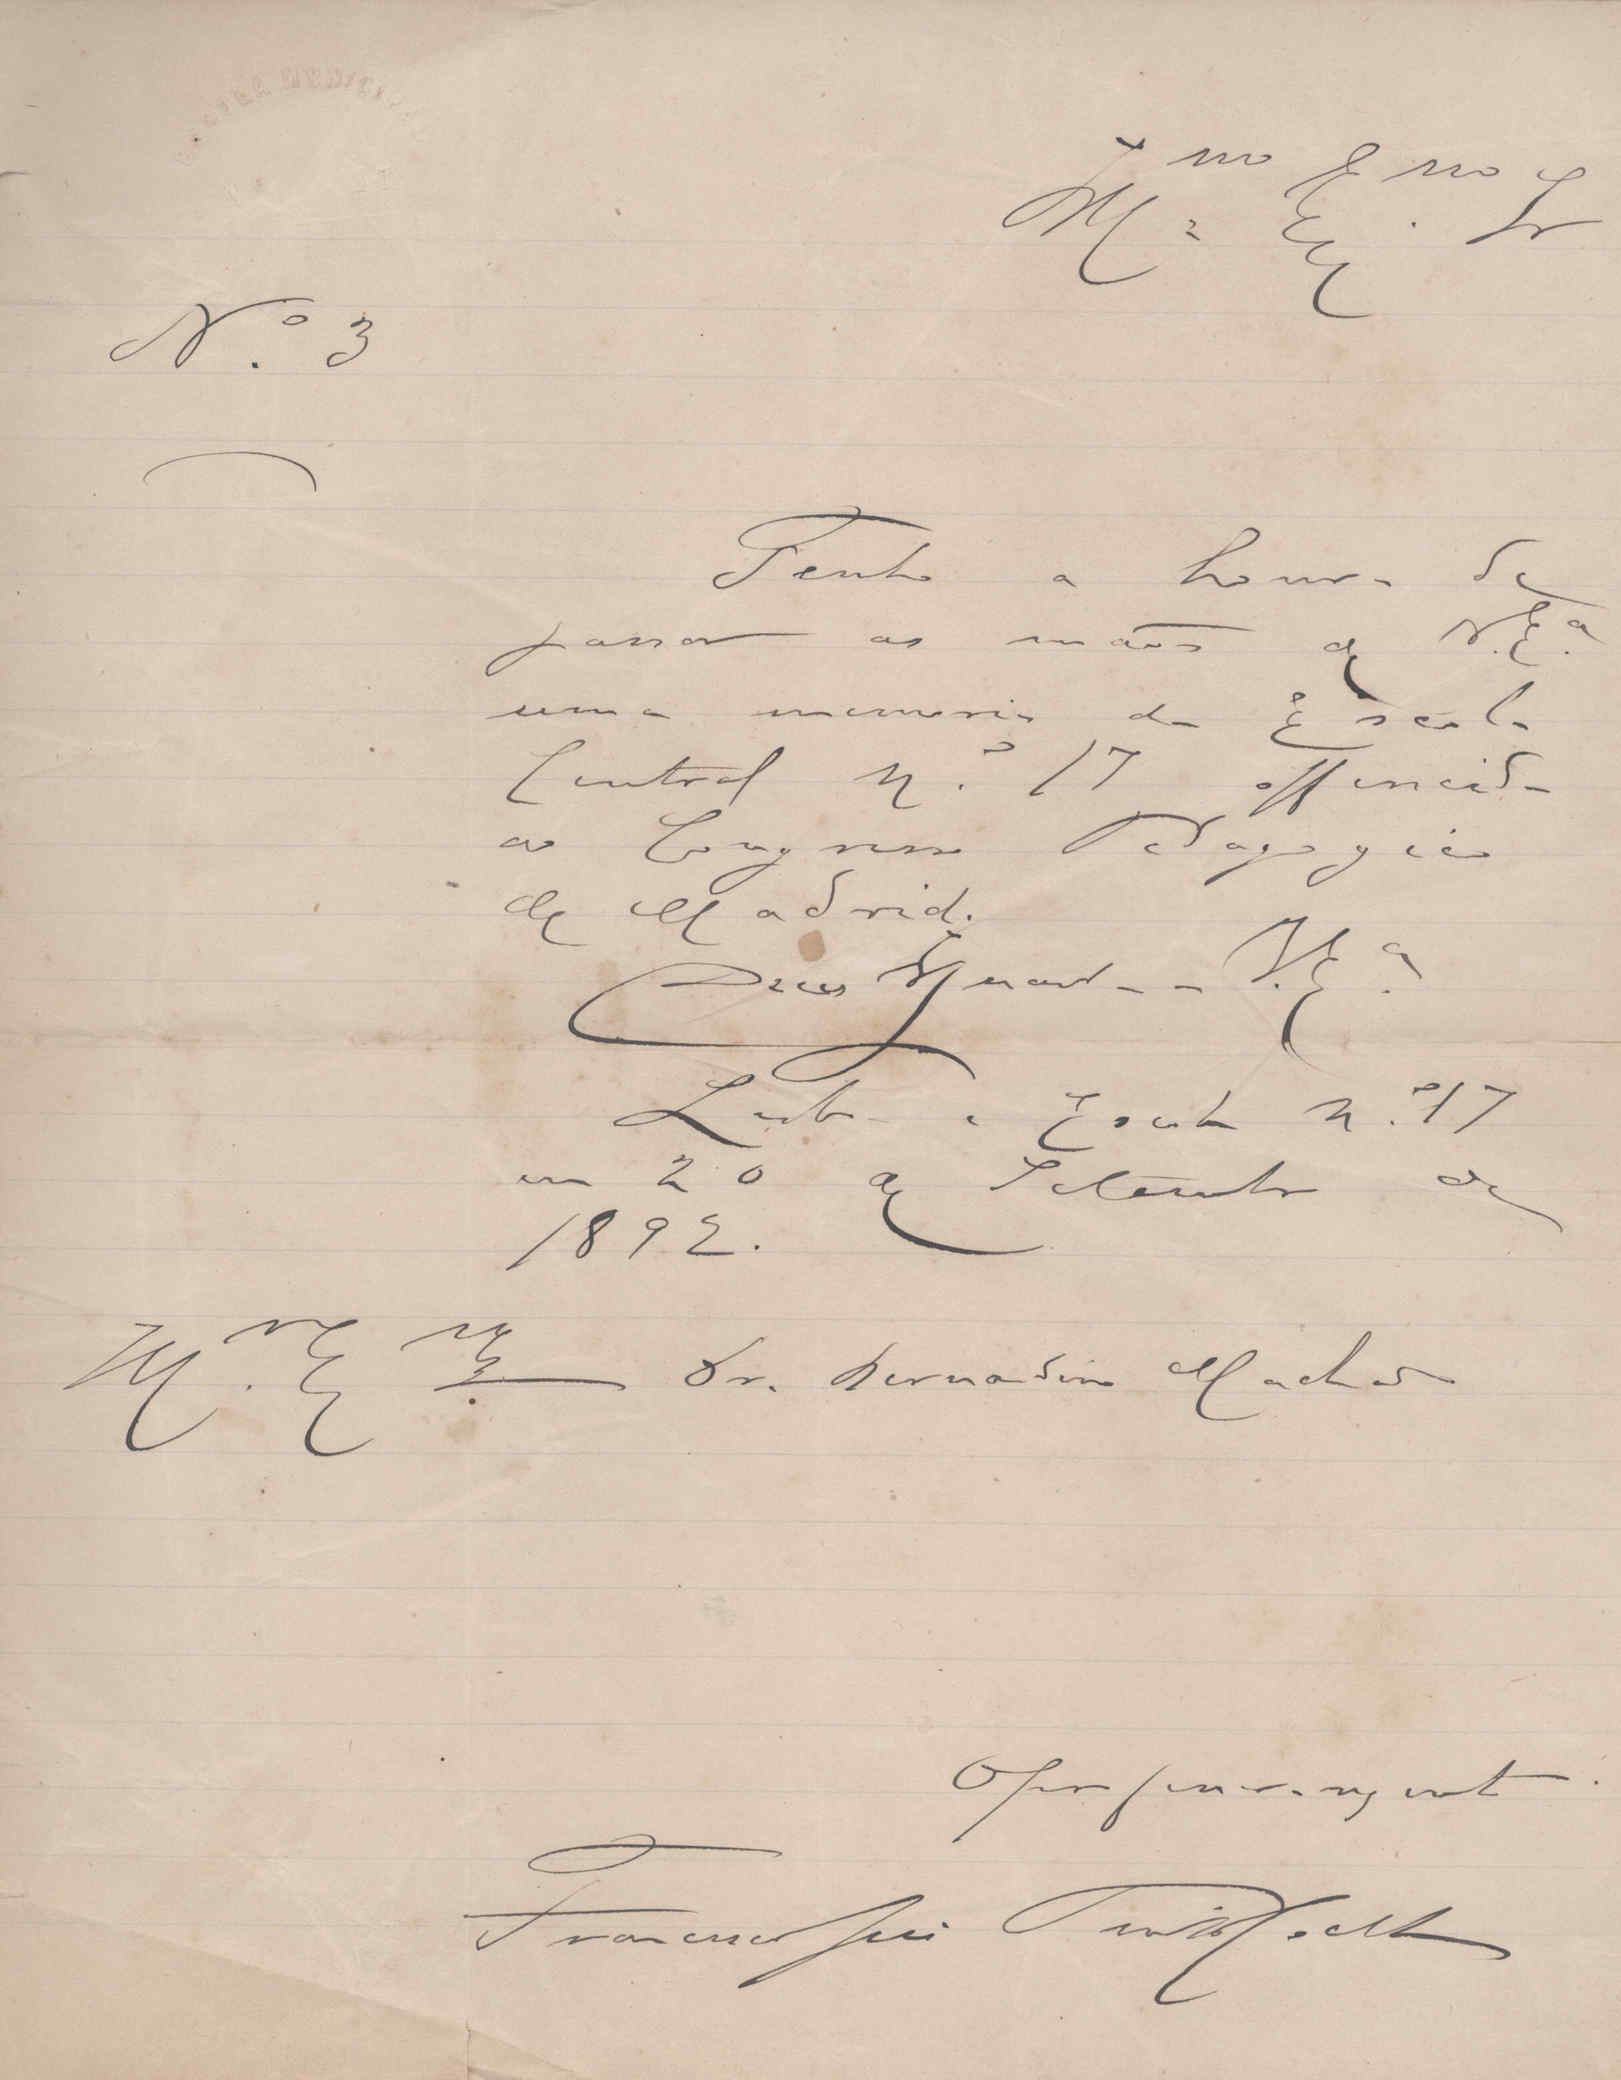 Ill.mo Ex.mo Sr
N.º 3
Tenho a honra de
passar as mãos de V. Ex.ª
uma memoria da Escola
Central N.º 17 offerecida
ao Congresso Pedagogico
de Madrid.
Deus Guarde a V. Ex.ª
Lisboa e Escola N.º 17
em 20 de Setembro de
1892.
Ill.mo Ex.mo Sr. Dr. Bernardino Machado
O professor regente
Francisco José